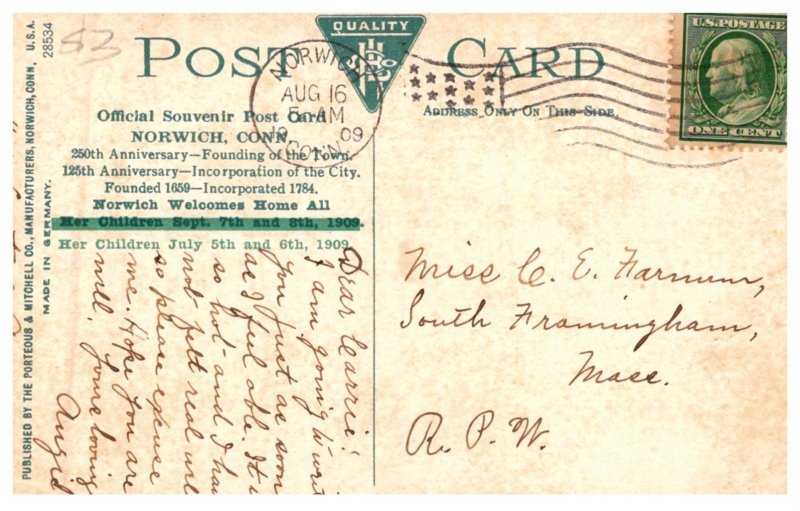 53
POST CARD
QUALITY
U.S. POSTAGE
ONE CENT
NORWICH
AUG 16
09
CONN.
ADDRESS ONLY ON THIS SIDE.
Official Souvenir Post Card
NORWICH, CONN.
250th Anniversary—Founding of the Town.
125th Anniversary—Incorporation of the City.
Founded 1659—Incorporated 1784.
Norwich Welcomes Home All
Her Children Sept. 7th and 8th, 1909.
Her Children July 5th and 6th, 1909.
PUBLISHED BY THE PORTEOUS & MITCHELL CO., MANUFACTURERS, NORWICH, CONN. U.S.A.
MADE IN GERMANY.
28534
Dear Carrie:
I am going to write
you just as soon
as I feel able. It is
so hot and I have
not felt real well
so please excuse
me. Hope you are
well. Some loving
Miss C. E. Farnum,
South Framingham,
Mass.
R. P. W.